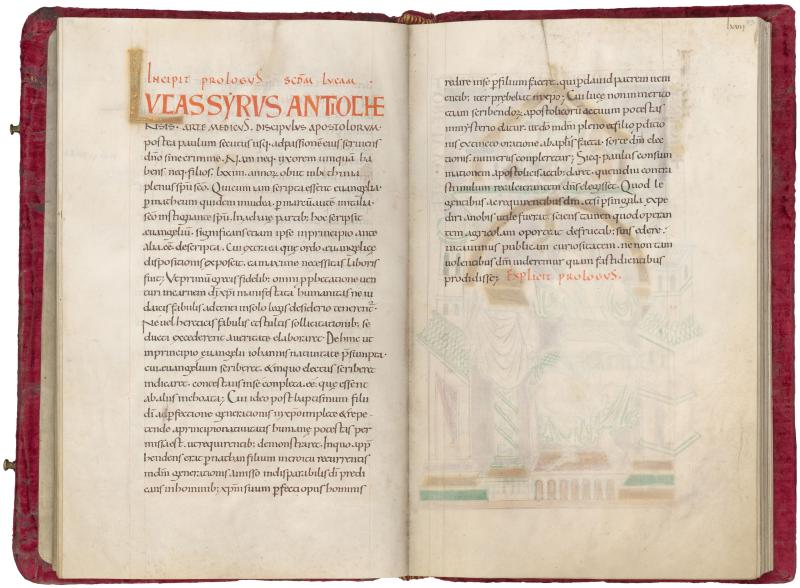 INCIPIT PROLOGUS SCDM LUCAM ·
LUCAS SYRUS ANTIOCHE
NSIS · ARTE MEDICUS, DISCIPULUS APOSTOLORUM ·
postea paulum secutus usq; ad passionem eius seruiens
dno sine crimine · Nam neq; uxorem umqua ha
bens neq; filios · lxxiiii annorum obiit in bethinia
plenus spu sco · Qui cum iam scripta essent euangelia ·
p matheum quidem in iudea · p marcu aute in italia ·
sco instigante spu · In achaie partib; hoc scripsit
euangeliu · significans etiam ipse in principio ante
alia ee descripta · Cui extra ea que ordo euangelice
dispositionis exposcit · ea maxime necessitas laboris
fuit; Ut primum grecis fidelib; omni pphetatione uen
turi in carnem di xpi manifestata humanitas ne iu
daicis fabulis adtenti in solo legis desiderio tenerent ·
Ne uel hereticis fabulis et stultis sollicitationib; se
ducti excederent a ueritate elaboraret · Dehinc ut
in principio euangelii iohannis natiuitate psumpta ·
cui euangelium scriberet · & in quo electus scriberet
indicaret · contestans in se completa ee · que essent
ab aliis inchoata; Cui ideo post baptismum filii
di a pfectione generationis in xpo implete & repe-
tende a principio natiuitatis humane potestas per
missa est · ut requirentib; demonstraret · In quo app
hendens erat p nathan filium introitu recurrentis
in dm generationis amisso indisparabilis di predi
cans in hominib; xpm suum pfecti opus hominis
redire in se p filium facere · qui p dauid patrem ueni
entib; iter prebebat in xpo; Cui luce non inmerito
etiam scribendoru apostolicoru actuum potestas
in ministerio datur · ut do in dm pleno et filio pditio
nis extincto oratione ab aplis facta · sorte dni elec
tionis numerus compleretur; Sicq; paulus consum
mationem apostolicis actib; daret · quem diu contra
stimulum recalcitrantem dns elegisset · Quod le
gentibus ac requirentibus dm · etsi p singula expe
diri a nobis utile fuerat · sciens tamen quod operan
tem agricolam oporteat de fructib; suis edere ·
uitauimus publicam curiositatem · ne non tam
uolentibus dm uideremur quam fastidientibus
prodidisse; EXPLICIT PROLOGUS ·